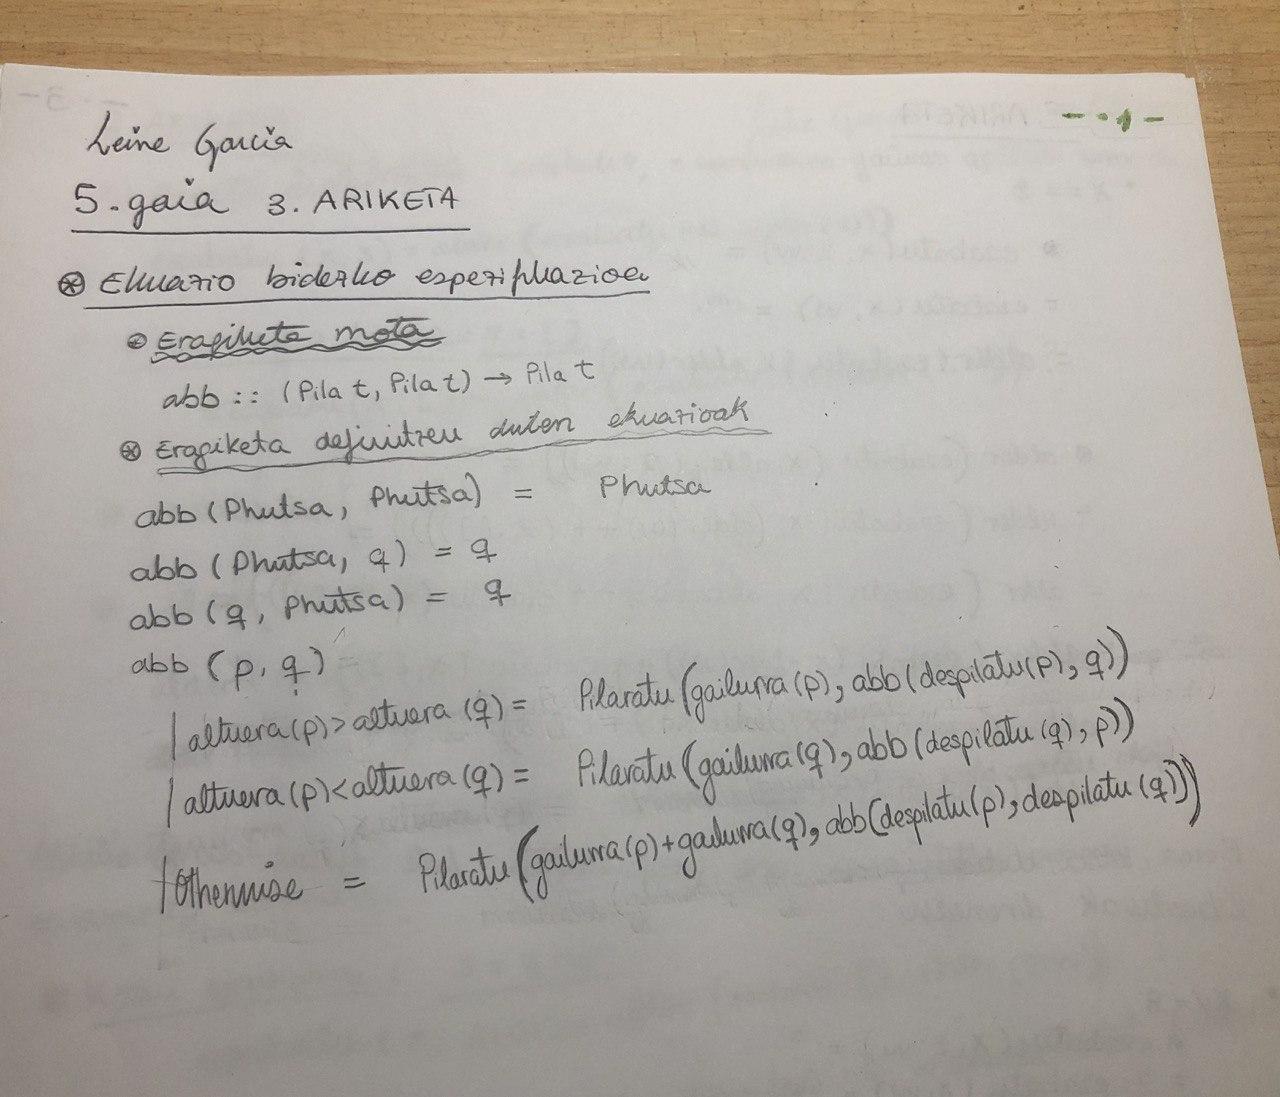 - . 1 -
Leire Garcia
5. gaia 3. ARIKETA
⊛ Ekuazio bidezko espezifikazioa
⊛ Eragiketa mota
abb :: (Pila t, Pila t) → Pila t
⊛ Eragiketa definitzen duten ekuazioak
abb (Phutsa, Phutsa) = Phutsa
abb (Phutsa, q) = q
abb (q, Phutsa) = q
abb (p, q) =
| altuera(p) > altuera (q) = Pilaratu (gailurra (p), abb (despilatu(p), q))
| altuera (p) < altuera (q) = Pilaratu (gailurra (q), abb (despilatu (q), p))
| Otherwise = Pilaratu (gailurra (p) + gailurra (q), abb (despilatu (p), despilatu (q)))